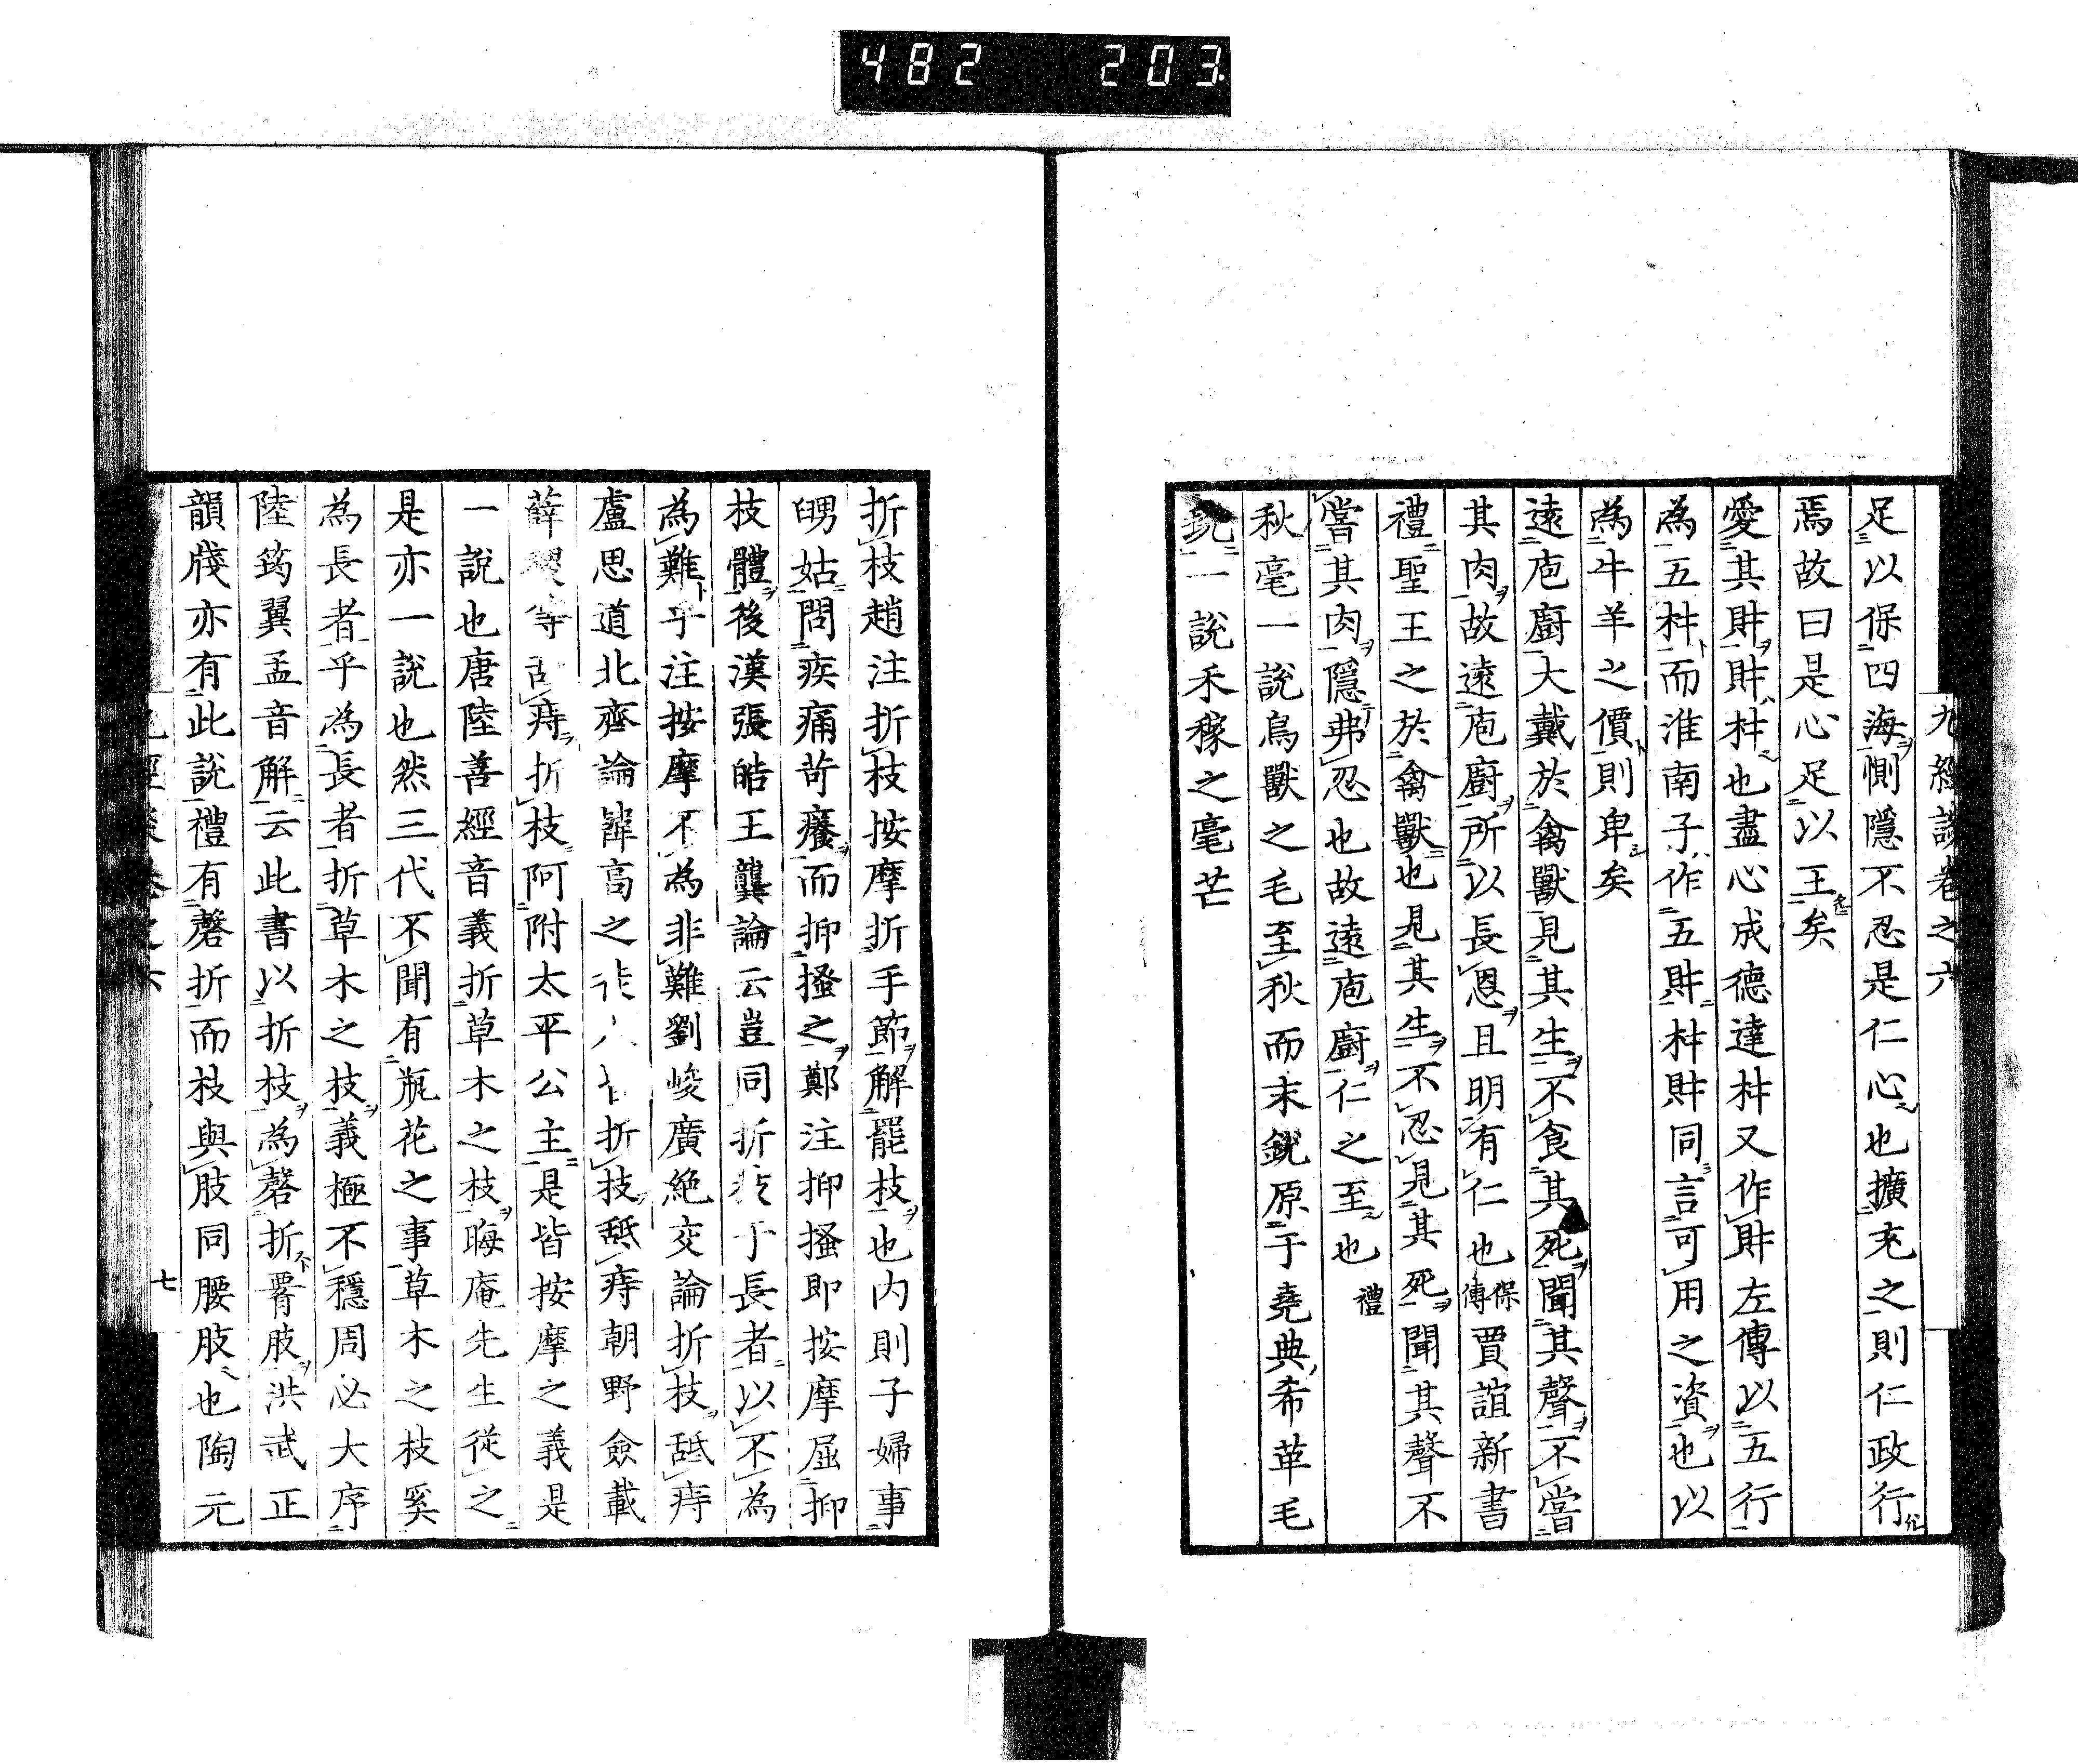 482 203
九經談卷之六
足以保四海惻隱不忍是仁心也擴充之則仁政行
焉故曰是心足以王矣
愛其財財材也盡心成德達材又作財左傳以五行
為五材而淮南子作五財材財同言可用之資也以
為牛羊之價則卑矣
遠庖廚大戴於禽獸見其生不食其死聞其聲不嘗
其肉故遠庖廚所以長恩且明有仁也保傅賈誼新書
禮聖王之於禽獸也見其生不忍見其死聞其聲不
嘗其肉隱弗忍也故遠庖廚仁之至也禮
秋毫一說鳥獸之毛至秋而末銳原于堯典希革毛
毨一說禾稼之毫芒
折枝趙注折枝按摩折手節解罷枝也內則子婦事
舅姑問疾痛苛癢而抑搔之鄭注抑搔即按摩屈抑
枝體後漢張皓王龔論云豈同折枝于長者以不為
為難乎注按摩不為非難劉峻廣絕交論折枝舐痔
盧思道北齊論韓高之徒人皆折枝舐痔朝野僉載
薛稷等舐痔折枝阿附太平公主是皆按摩之義是
一說也唐陸善經音義折草木之枝晦庵先生從之
是亦一說也然三代不聞有瓶花之事草木之枝奚
為長者乎為長者折草木之枝義極不穩周必大序
陸筠翼孟音解云此書以折枝為磬折腰肢洪武正
韻牋亦有此說禮有磬折而枝與肢同腰肢也陶元
七